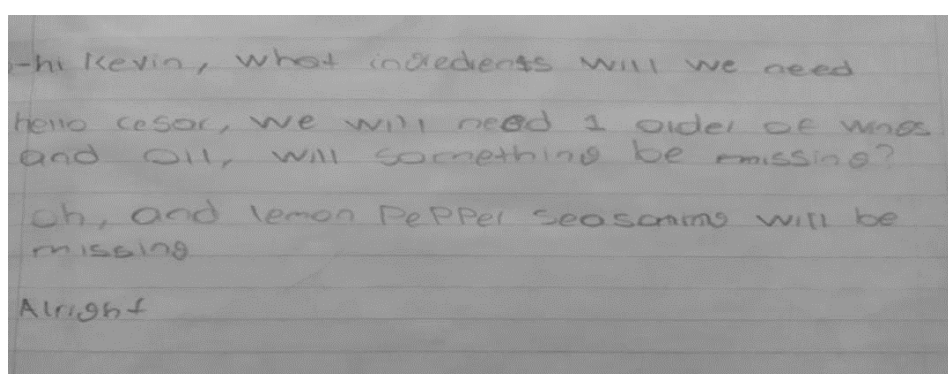 -hi Kevin, what ingredients will we need
hello cesar, we will need 1 order of wings
and oil, will something be missing?
oh, and lemon pepper seasoning will be
missing
Alright